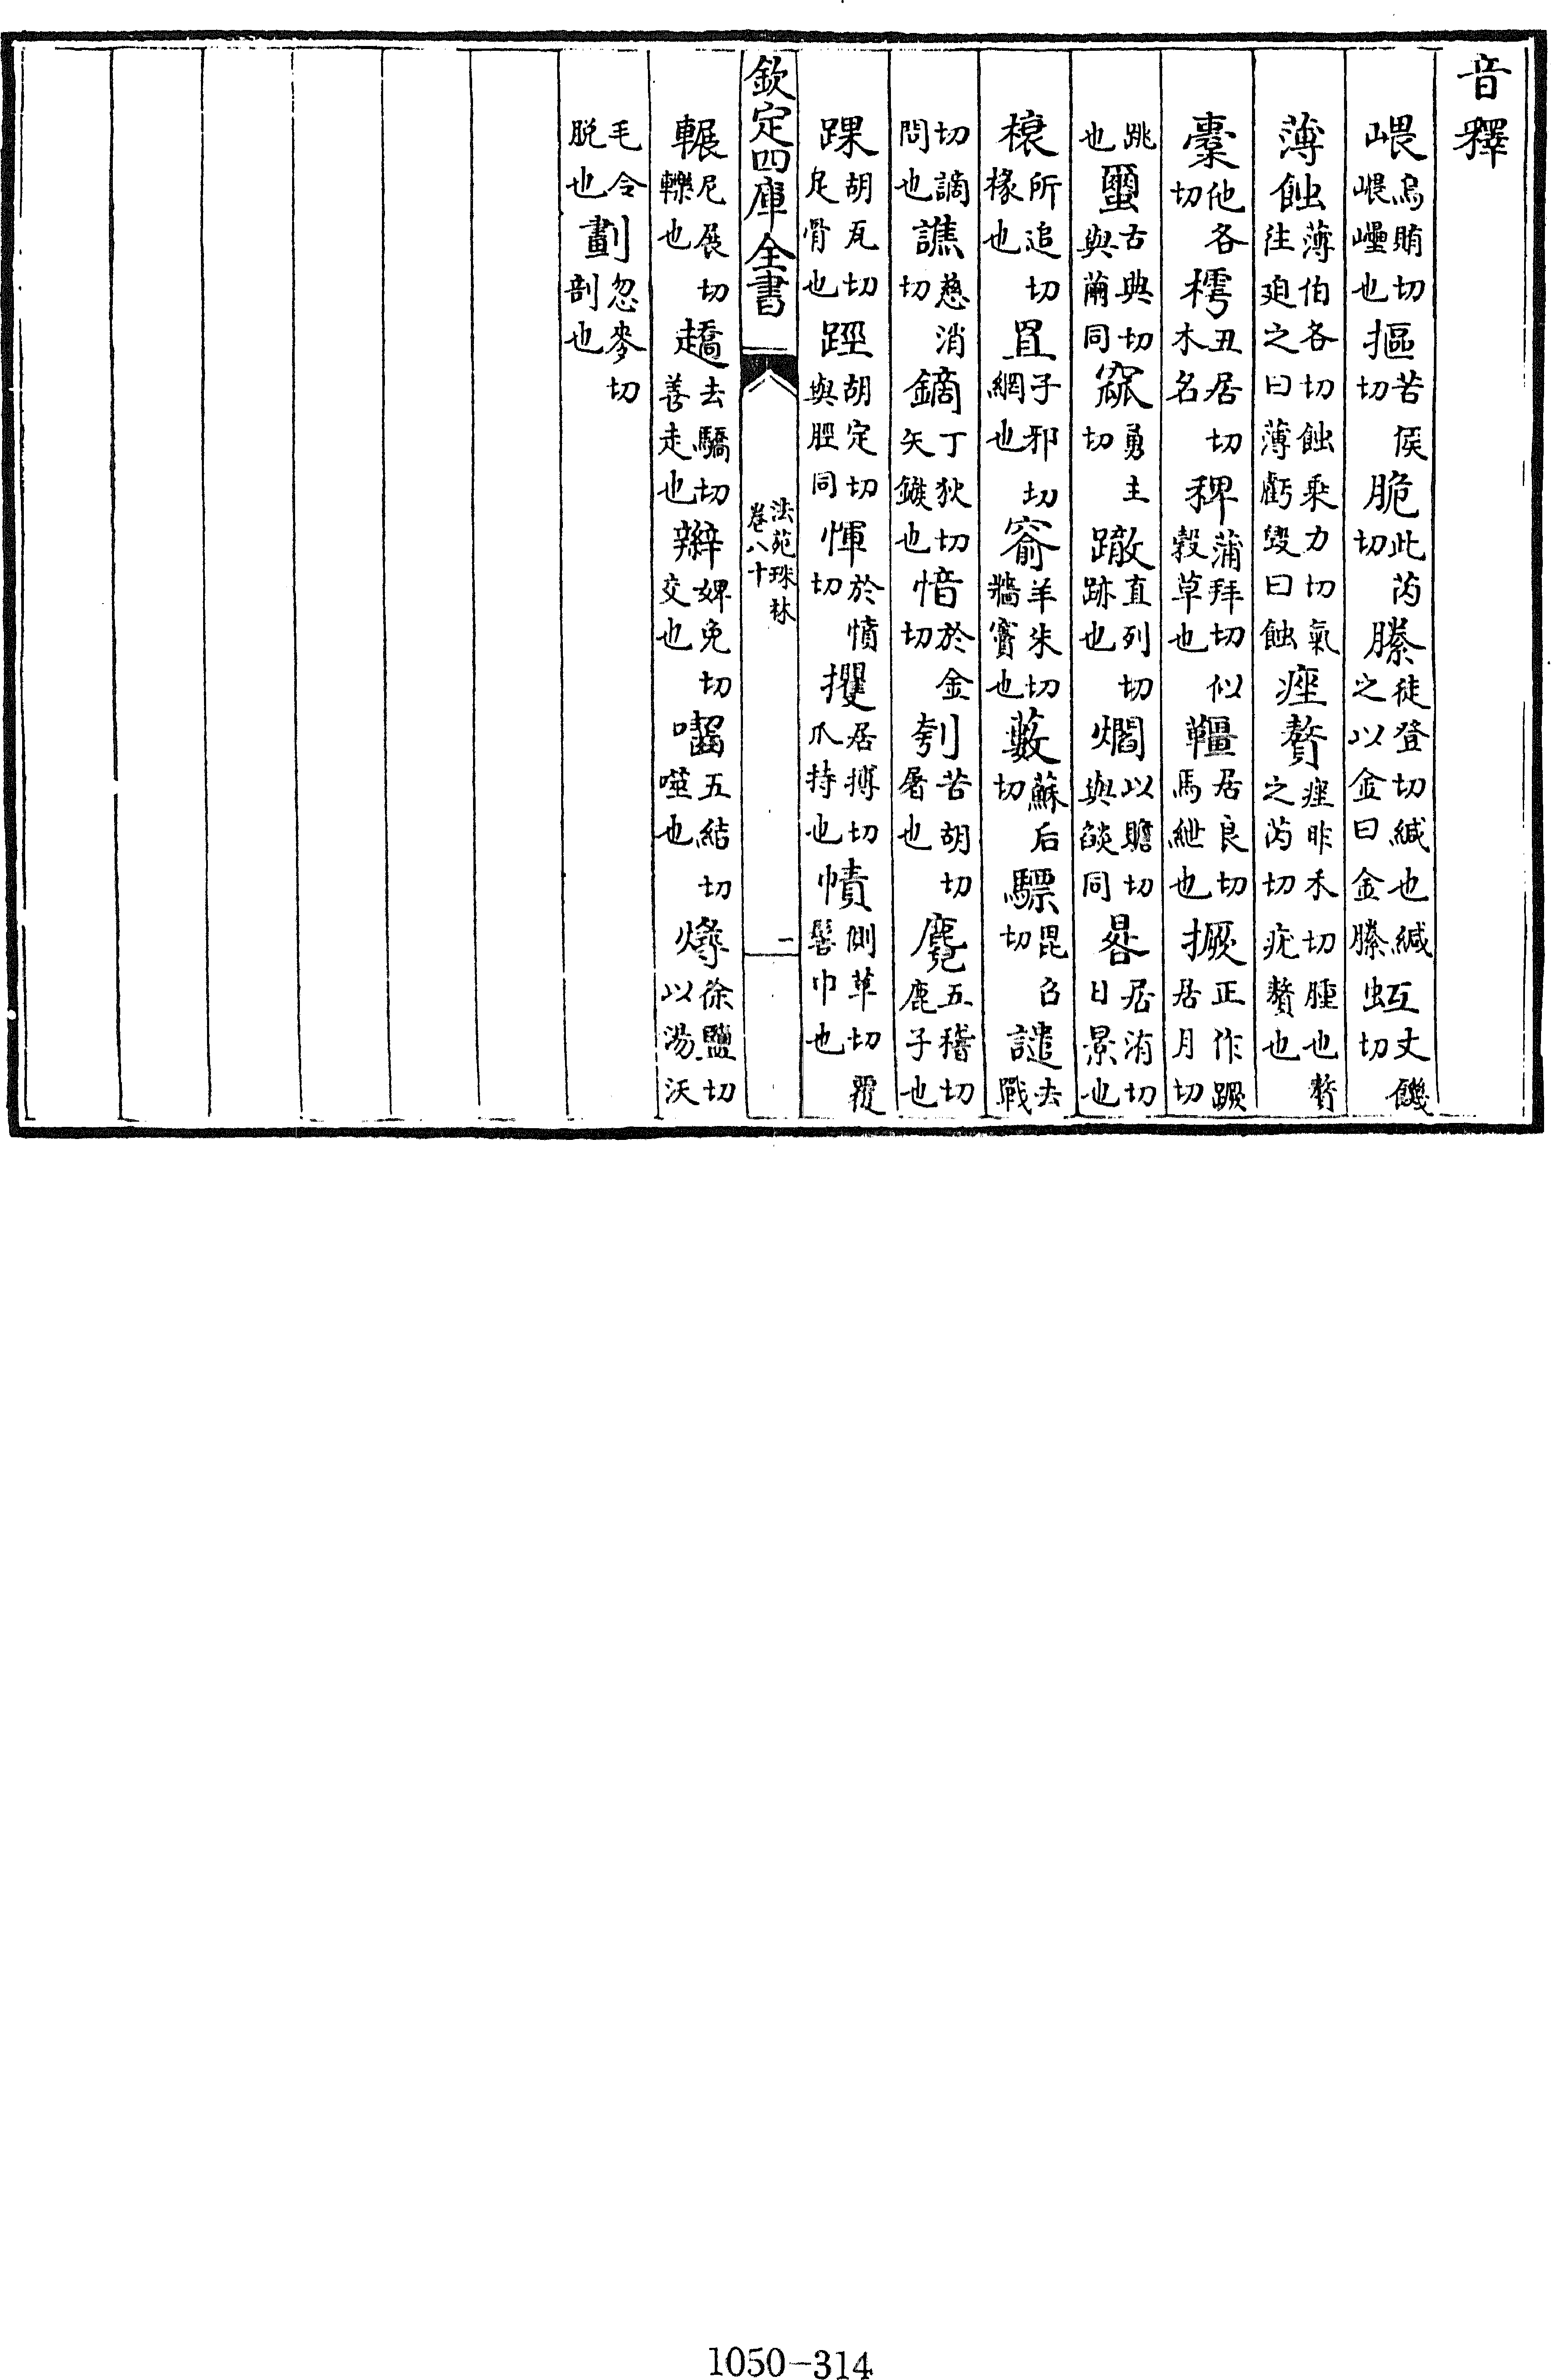 音釋
嵔烏賄切嵔㠥也摳苦侯切脆此芮切縢徒登切緘也緘之以金曰金縢虹丈饑切
薄蝕薄伯各切蝕乘力切氣往廹之曰薄虧毀曰蝕痤贅痤昨禾切腫也贅之芮切疣贅也
橐他各切樗丑居切木名稗蒲拜切似穀草也韁居良切馬紲也撅正作蹶居月切
跳也蠒古典切與繭同窳勇主切蹾直列切跡也爓以贍切與燄同晷居洧切日景也
榱所追切椽也罝子邪切網也窬羊朱切牆竇也藪蘇后切驃毘召切譴去戰
切謫問也譙慈消切鏑丁狄切矢鏃也愔於金切刳苦胡切屠也麑五稽切鹿子也
踝胡瓦切足骨也踁胡定切與脛同惲於憤切攫居搏切爪持也幘側革切覆髻巾也
欽定四庫全書
法苑珠林
卷八十
二
輾尼展切轢也趫去驕切善走也辮婢免切交也囓五結切噬也燖徐鹽切以湯沃
毛令脫也劃忽麥切剖也
1050-314